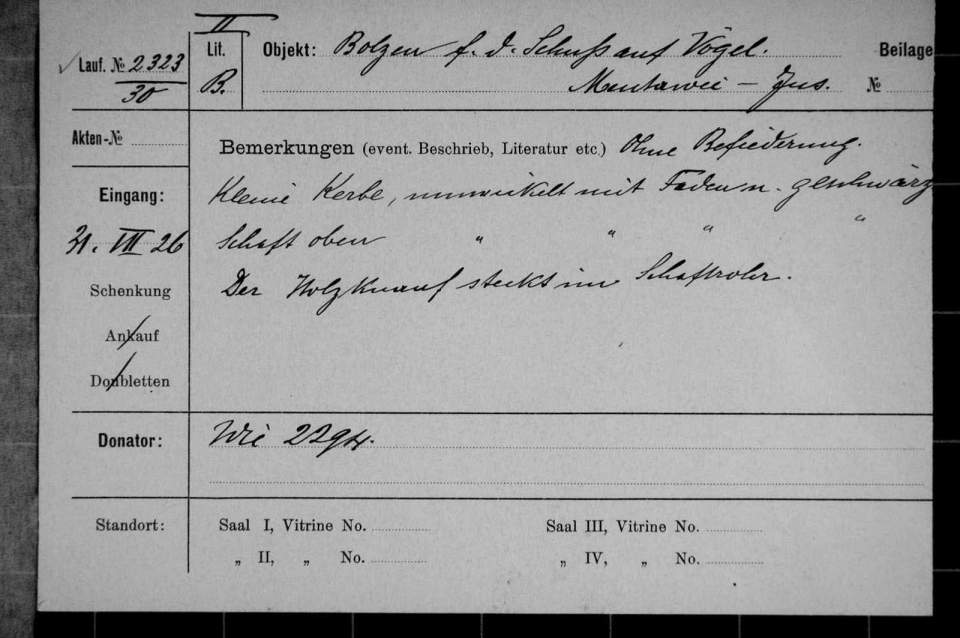 II
Lauf. № 2323
30
Lit.
B.
Objekt: Bolzen f. d. Schuss auf Vögel.
Mentawei – Jns.
Beilage
№
Akten-№
Bemerkungen (event. Beschrieb, Literatur etc.) Ohne Befiederung.
Kleine Kerbe, umwickelt mit Faden u. geschwärz
Schaft oben " " " "
Der Holzknauf steckt im Schaftrohr.
Eingang:
31. VII 26
Schenkung
Ankauf
Doubletten
Donator: Wie 2294.
Standort:
Saal I, Vitrine No.
„ II, „ No.
Saal III, Vitrine No.
„ IV, „ No.